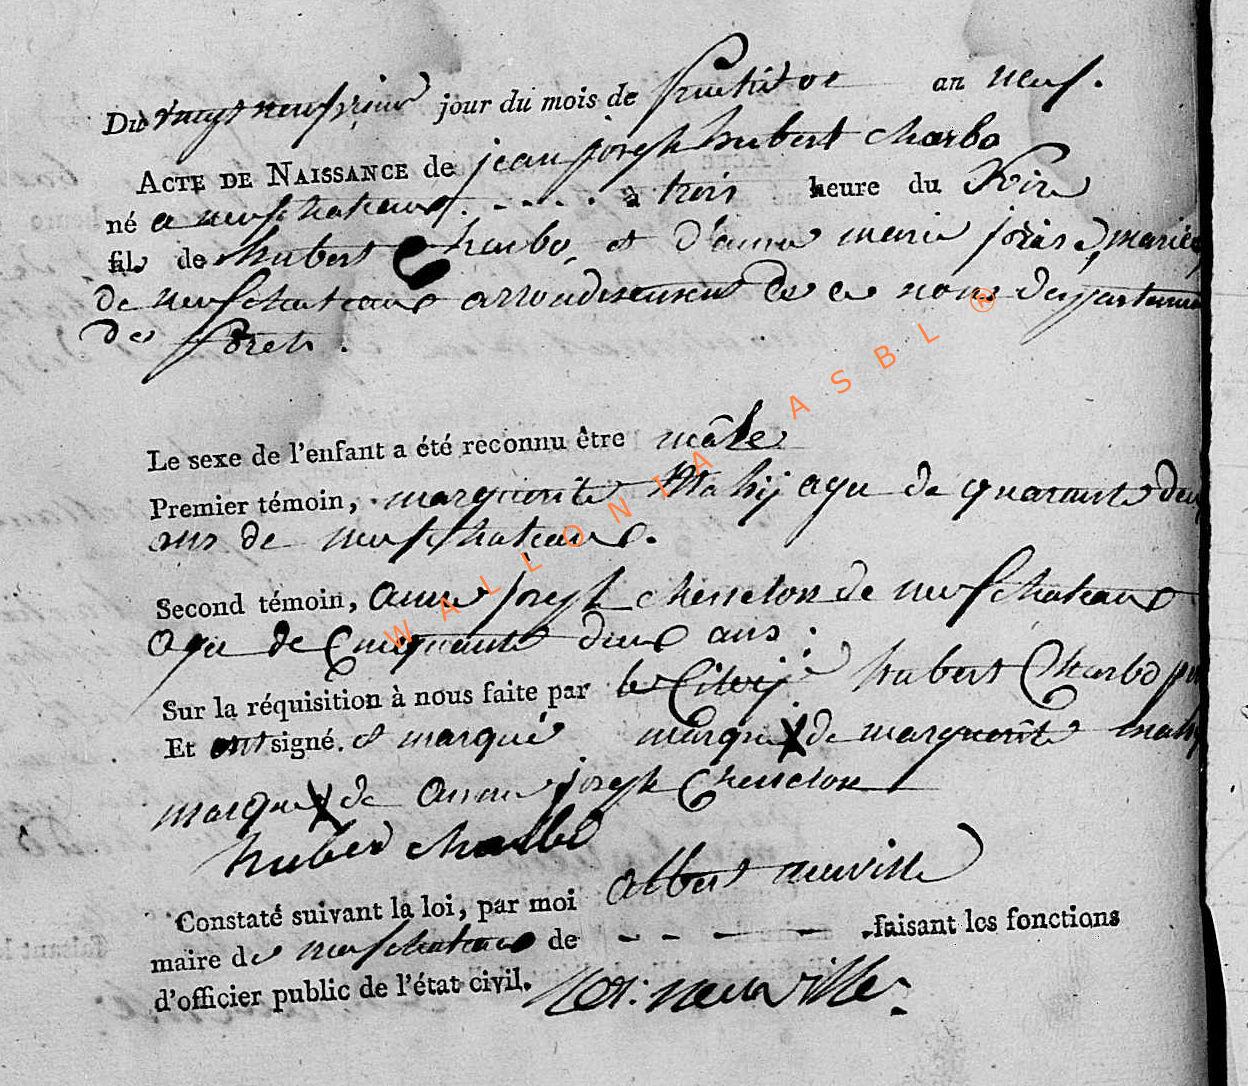 Du vingt neufvieme jour du mois de fructidor an neuf.
ACTE DE NAISSANCE de jean joseph hubert charbo
né a neufchateaux . - . . . à trois heure du soire
fils de hubert Charbo, et d'anne marie joris e, mariée
de neufchateaux arrondissement de ce nom Departement
des forets.
Le sexe de l'enfant a été reconnu être mâle
Premier témoin, marguerite Mahij agee de quarante deux
ans de neufchateaux.
Second témoin, anne joseph chesselon de neufchateaux
agee de Cinquante deux ans :
Sur la réquisition à nous faite par le Citoij hubert Charbo
Et ont signé. et marqué marque X de marguerite mahij
marque X de anne joseph Chesselon
huber charbo
Constaté suivant la loi, par moi albert neuville
maire de neufchateaux de - - - - faisant les fonctions
d'officier public de l'état civil. neuville
WALLONIA ASBL ®